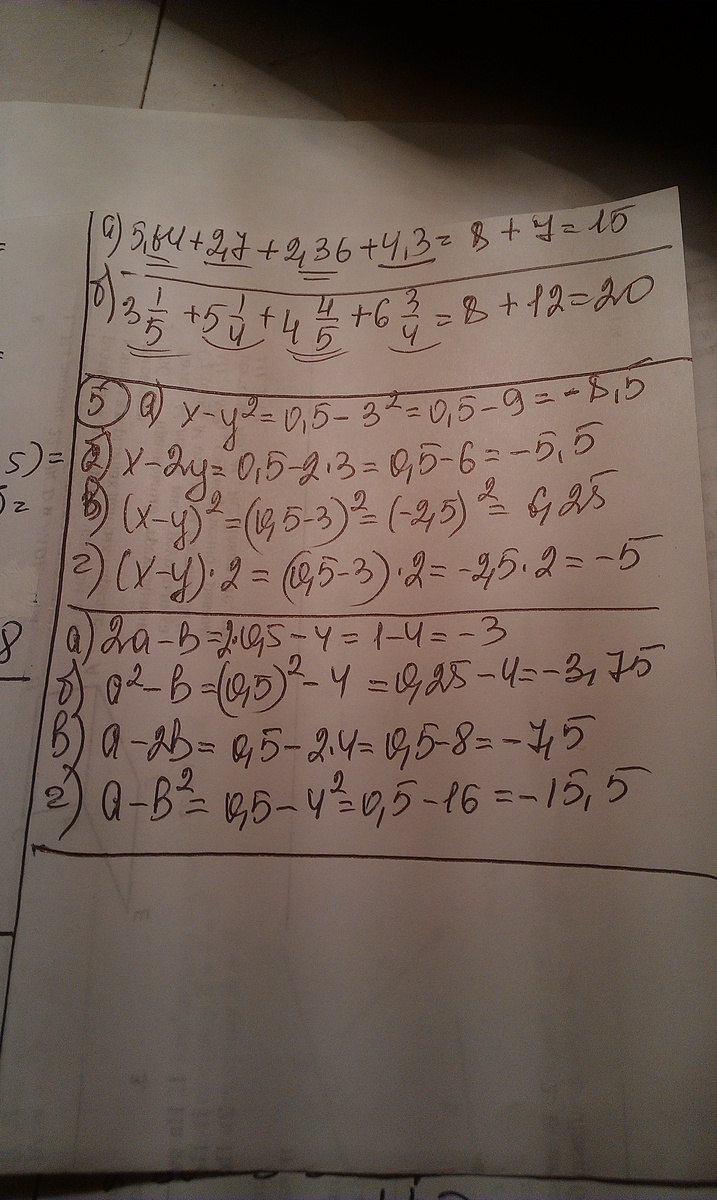 а) 5,64+2,7+2,36+4,3= 8+7=15
б) 3 1/5 +5 1/4 +4 4/5 +6 3/4 =8+12=20
5 а) x-y²=0,5-3²=0,5-9=-8,5
б) x-2y=0,5-2·3=0,5-6=-5,5
в) (x-y)²=(0,5-3)²=(-2,5)²=6,25
г) (x-y)·2=(0,5-3)·2=-2,5·2=-5
а) 2a-в=2·0,5-4=1-4=-3
б) a²-в=(0,5)²-4=0,25-4=-3,75
в) a-2в=0,5-2·4=0,5-8=-7,5
г) a-в²=0,5-4²=0,5-16=-15,5
5)=
8